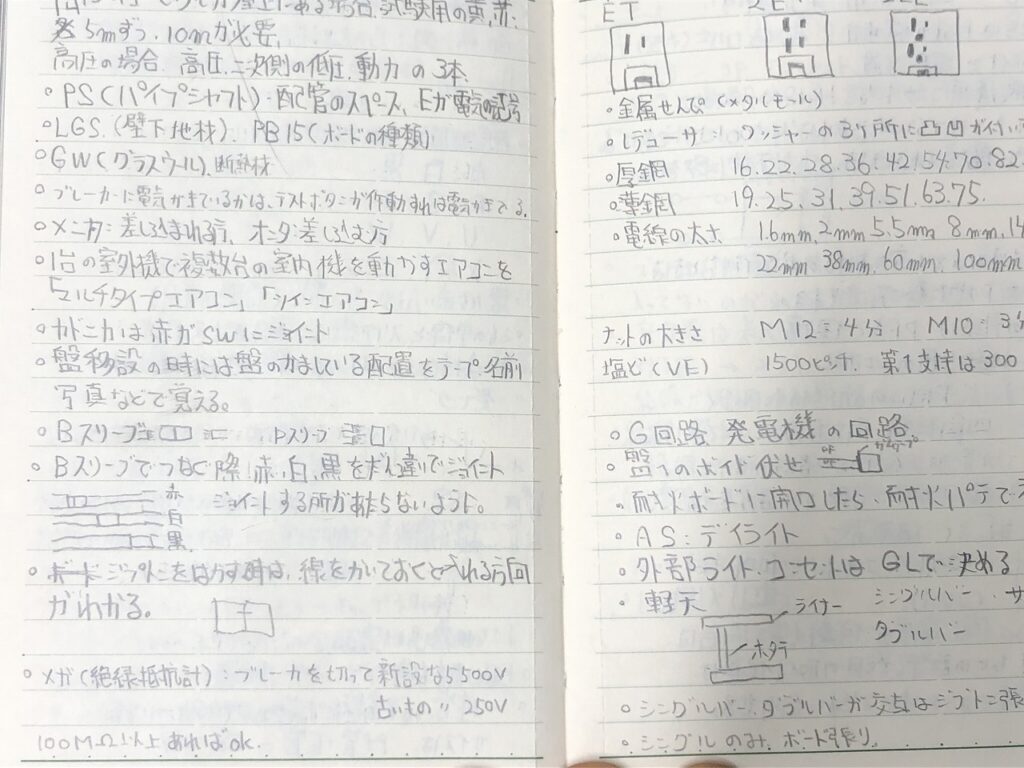 5mずつ.10mが必要.
高圧の場合.高圧.二次側の低圧.動力の3本.
○PS(パイプシャフト)・配管のスペース、Eが電気の記号
○LGS.(壁下地材). PB15(ボードの種類)
○GW(グラスウール).断熱材
○ブレーカーに電気がきているかは、テストボタンが作動すれば電気がきてる.
○メンタ:差し込まれる方、オンタ:差し込む方
○1台の室外機で複数台の室内機を動かすエアコンを
「マルチタイプエアコン」、「ツインエアコン」
○カドニカは赤がSWにジョイント
○盤移設の時には盤のかましている配置をテープ.名前
写真などで覚える。
○Bスリーブ Pスリーブ
○Bスリーブでつなぐ際.赤.白.黒をだん違いでジョイント
赤 ジョイントする所があたらないように。
白
黒
○ジプトンをはらす時は、線をかいておくと
がわかる。
○メガ(絶縁抵抗計):ブレーカを切って新設なら500V
古いもの〃 250V
100MΩ以上あればok.
ET 2E
○金属せんぴ(メタルモール)
○レデューサー.ワッシャーの3ヶ所に凸凹が付い
○厚鋼 16.22.28.36.42.54.70.82.
○薄鋼 19.25.31.39.51.63.75.
○電線の太さ 1.6mm.2mm 5.5mm 8mm.14
22mm 38mm.60mm.100mm
ナットの大きさ M12:4分 M10:3分
塩ビ(VE) 1500ピッチ. 第1支持は300
○G回路 発電機の回路
○盤へのボイド伏せ
○耐火ボードに開口したら・耐火パテで
○AS:デイライト
○外部ライト.コンセントはGLで決める
○軽天 ライナー シングルバー サ
ダブルバー
ホタテ
○シングルバー.ダブルバーが交互はジプトン張
○シングルのみ.ボード張り.